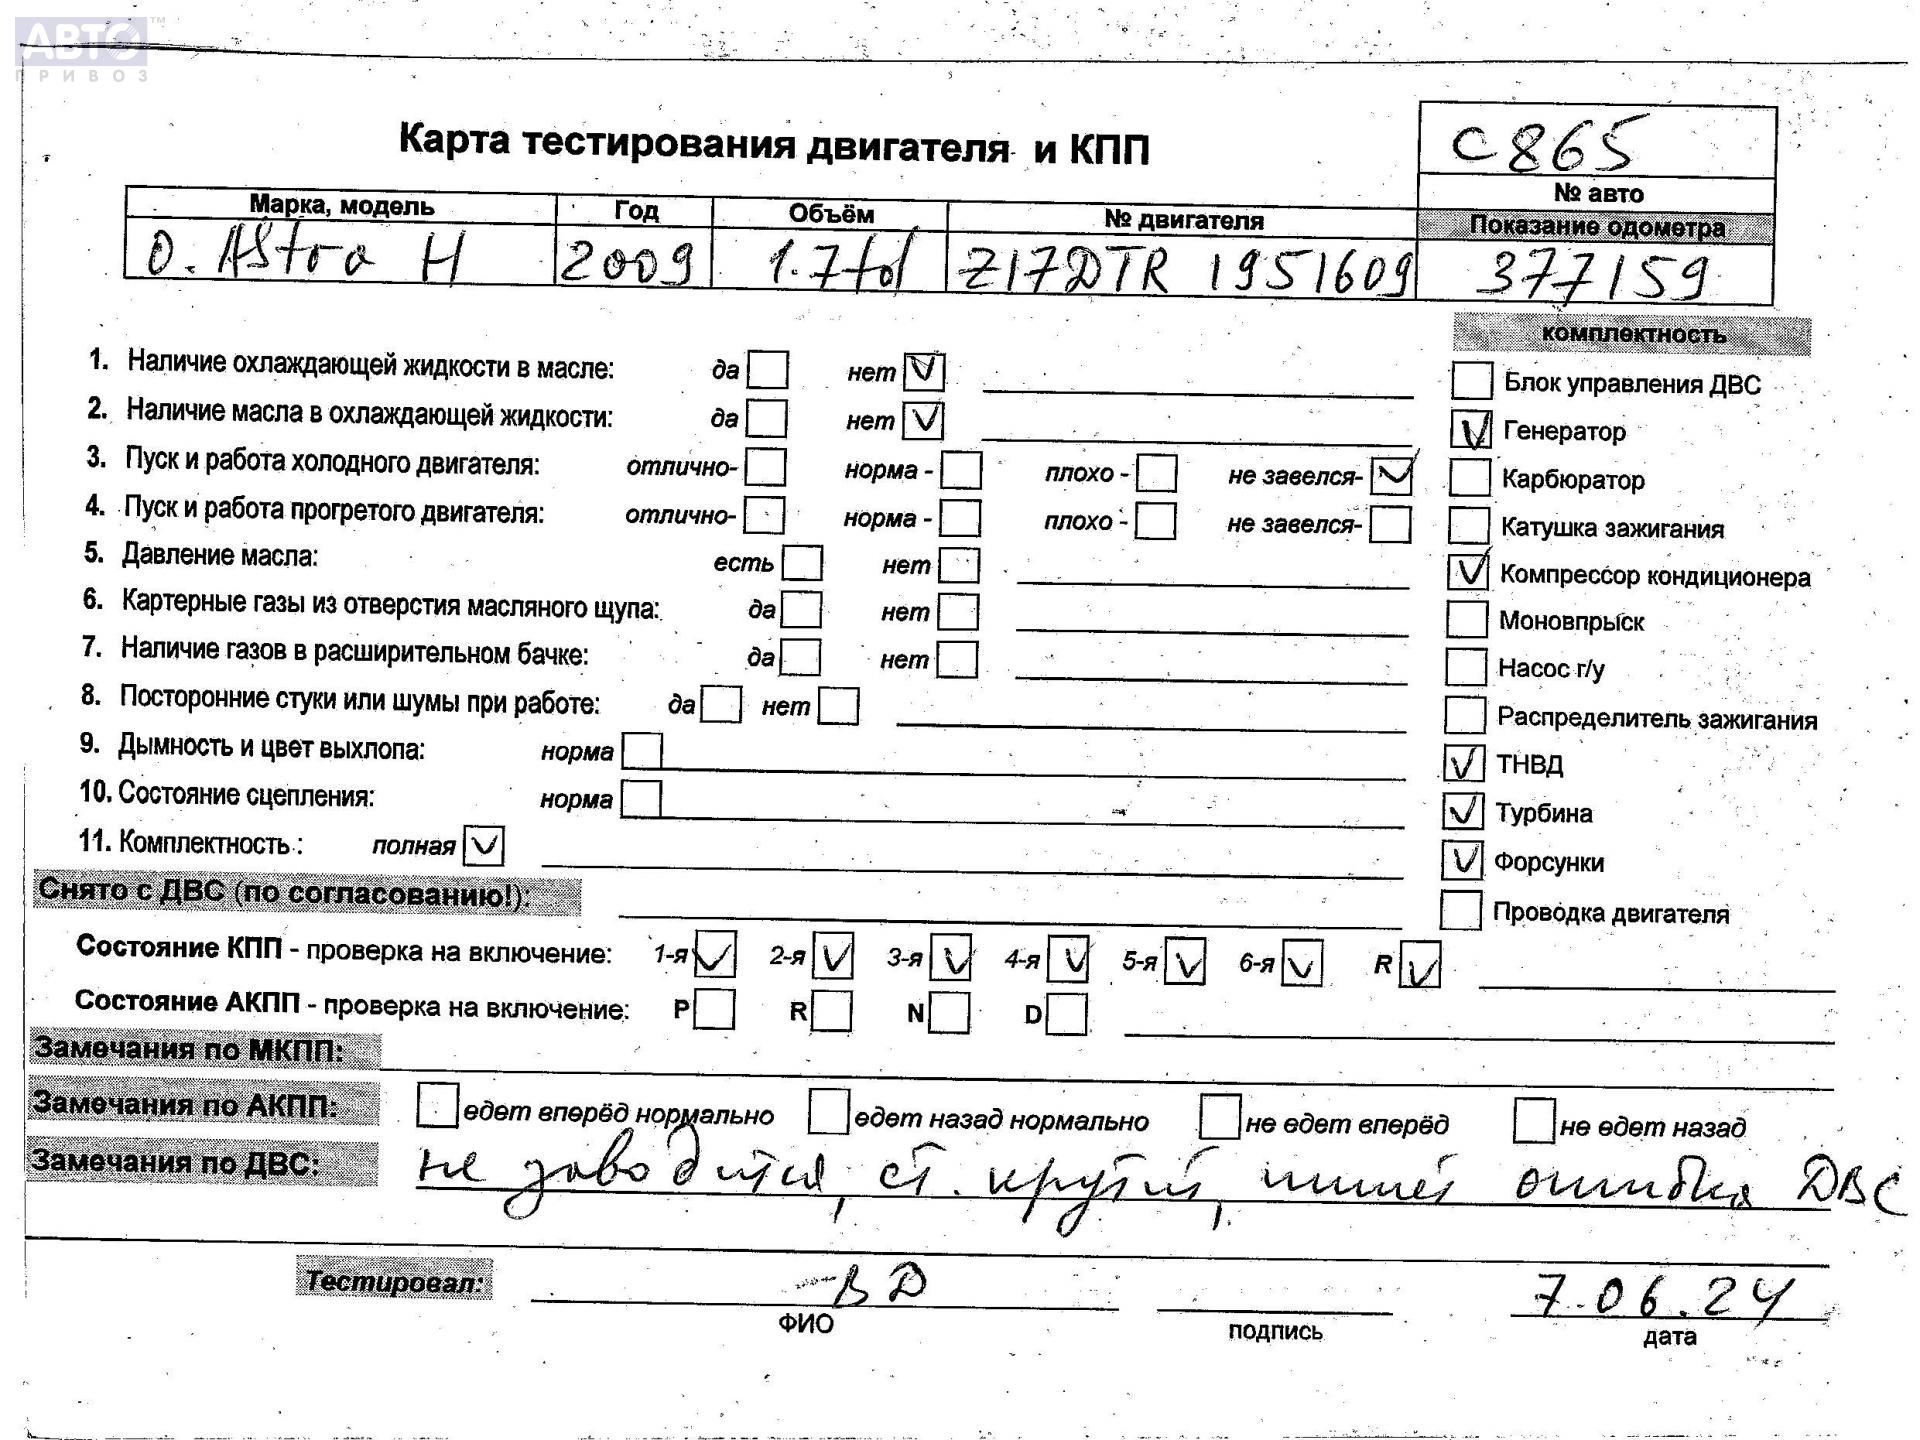 АВТО™
ПРИВОЗ
Карта тестирования двигателя и КПП
С865
№ авто
Марка, модель Год Объём № двигателя Показание одометра
O. Astra H 2009 1.7td Z17DTR 1951609 377159
комплектность
1. Наличие охлаждающей жидкости в масле: да нет V
Блок управления ДВС
2. Наличие масла в охлаждающей жидкости: да нет V
V Генератор
3. Пуск и работа холодного двигателя: отлично- норма - плохо - не завелся- V
Карбюратор
4. Пуск и работа прогретого двигателя: отлично- норма - плохо - не завелся-
Катушка зажигания
5. Давление масла: есть нет
V Компрессор кондиционера
6. Картерные газы из отверстия масляного щупа: да нет
Моновпрыск
7. Наличие газов в расширительном бачке: да нет
Насос г/у
8. Посторонние стуки или шумы при работе: да нет
Распределитель зажигания
9. Дымность и цвет выхлопа: норма
V ТНВД
10. Состояние сцепления: норма
V Турбина
11. Комплектность : полная V
V Форсунки
Снято с ДВС (по согласованию!):
Проводка двигателя
Состояние КПП - проверка на включение: 1-я V 2-я V 3-я V 4-я V 5-я V 6-я V R V
Состояние АКПП - проверка на включение: P R N D
Замечания по МКПП:
Замечания по АКПП: едет вперёд нормально едет назад нормально не едет вперёд не едет назад
Замечания по ДВС: не заводится, ст. крутит, пишет ошибка ДВС
Тестировал: ВД 7.06.24
ФИО подпись дата